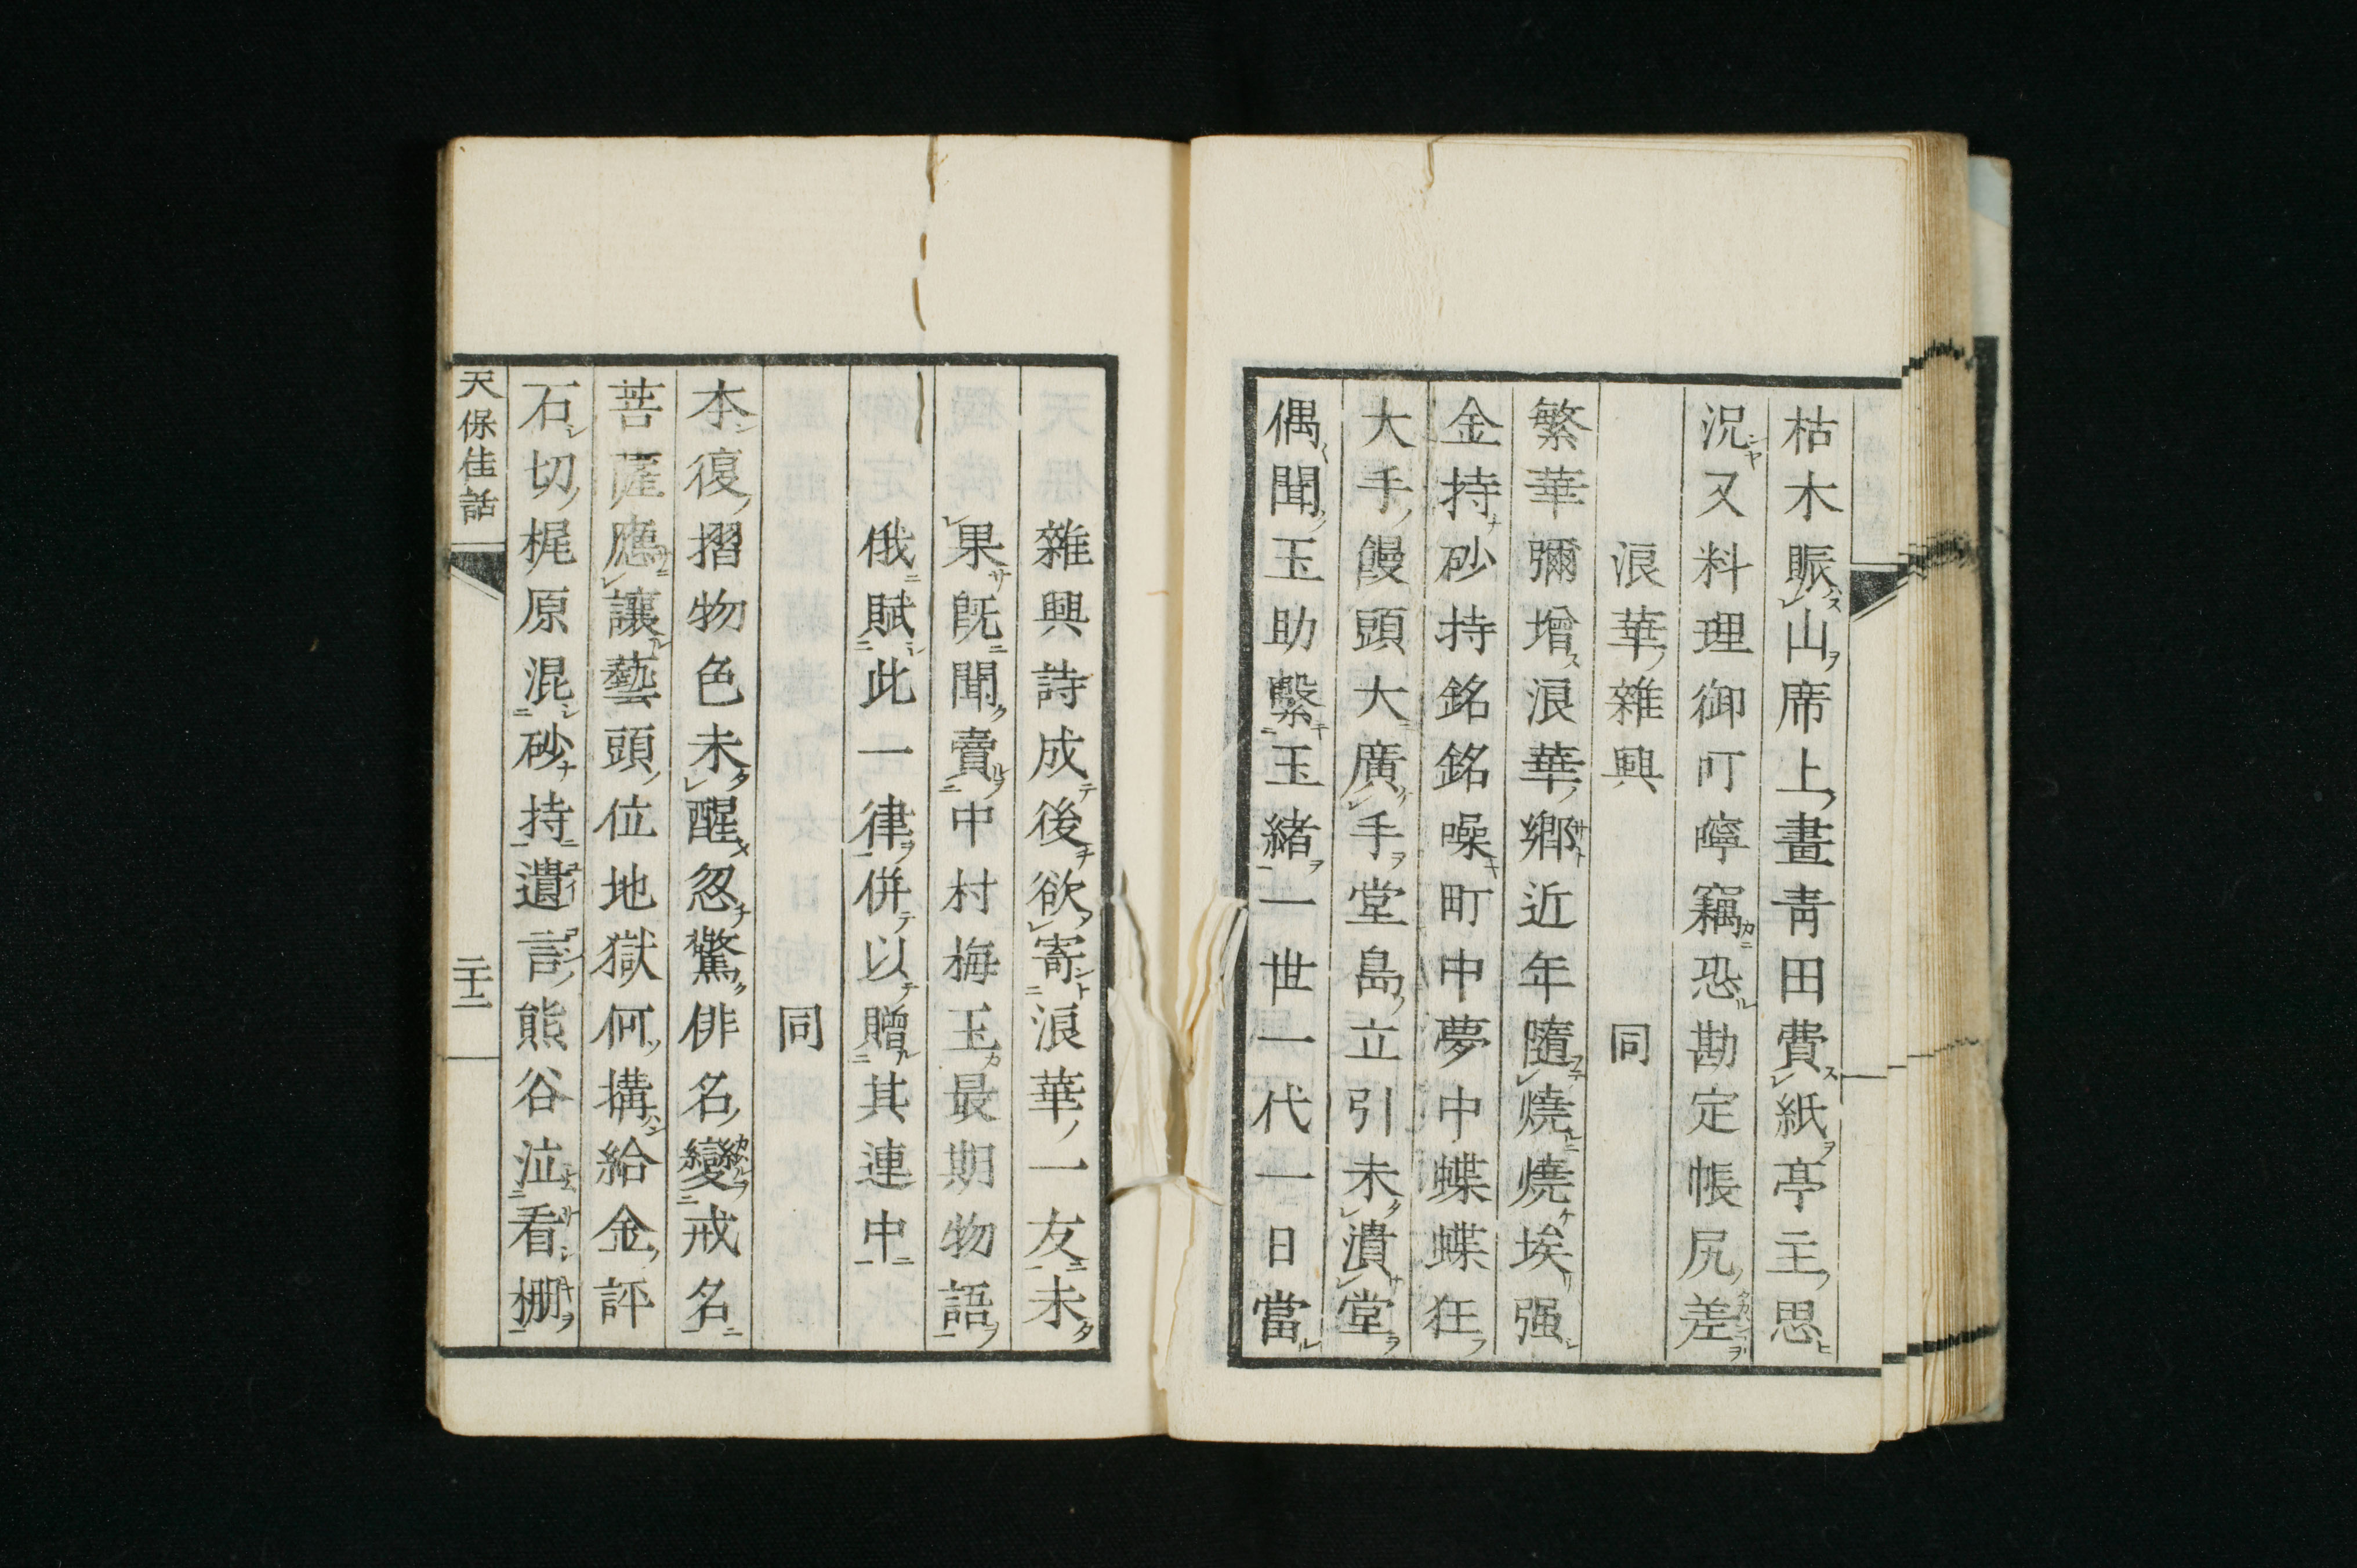 枯木賑山席上畫青田費紙亭主思
況又料理御叮嚀竊恐勘定帳尻差
浪華雜興 同
繁華彌增浪華鄉近年隨燒燒埃强
金持砂持銘銘噪町中夢中蝶蝶狂
大手饅頭大廣手堂島立引未潰堂
偶聞玉助繫玉緒一世一代一日當
雜興詩成後欲寄浪華一友未
果既聞賣中村梅玉最期物語
俄賦此一律併以贈其連中
同
本復摺物色未醒忽驚俳名變戒名
菩薩應讓藝頭位地獄何搆給金評
石切梶原混砂持遺言熊谷泣看棚
天保佳話
二十二